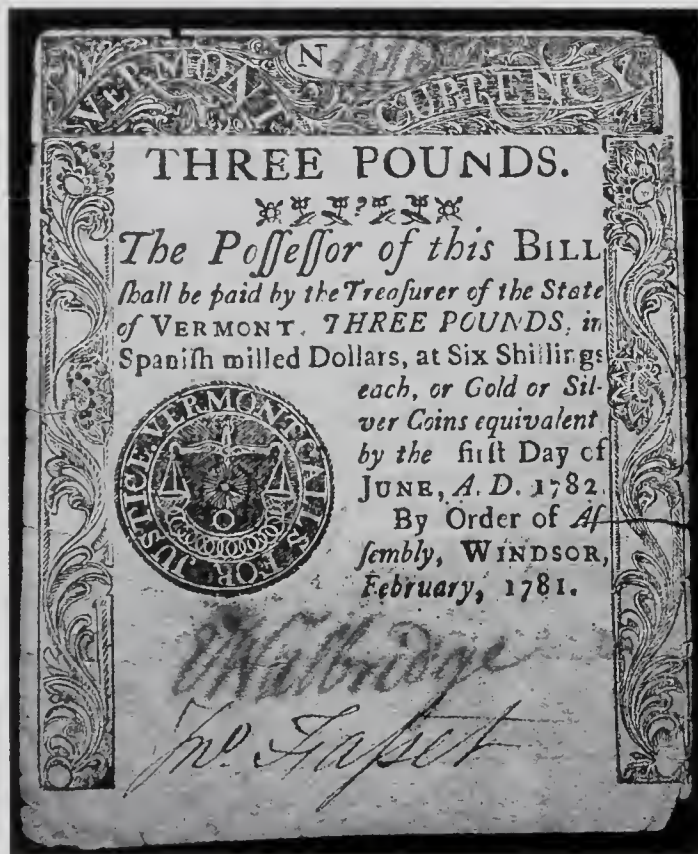 VERMONT CURRENCY
N
THREE POUNDS.
The Poſſeſſor of this BILL
ſhall be paid by the Treaſurer of the State
of VERMONT, THREE POUNDS, in
Spaniſh milled Dollars, at Six Shillings
each, or Gold or Sil-
ver Coins equivalent
by the firſt Day of
JUNE, A. D. 1782.
By Order of Aſ
ſembly, WINDSOR,
February, 1781.
VERMONT CALLS FOR JUSTICE
Walbridge
Jno. Faſset